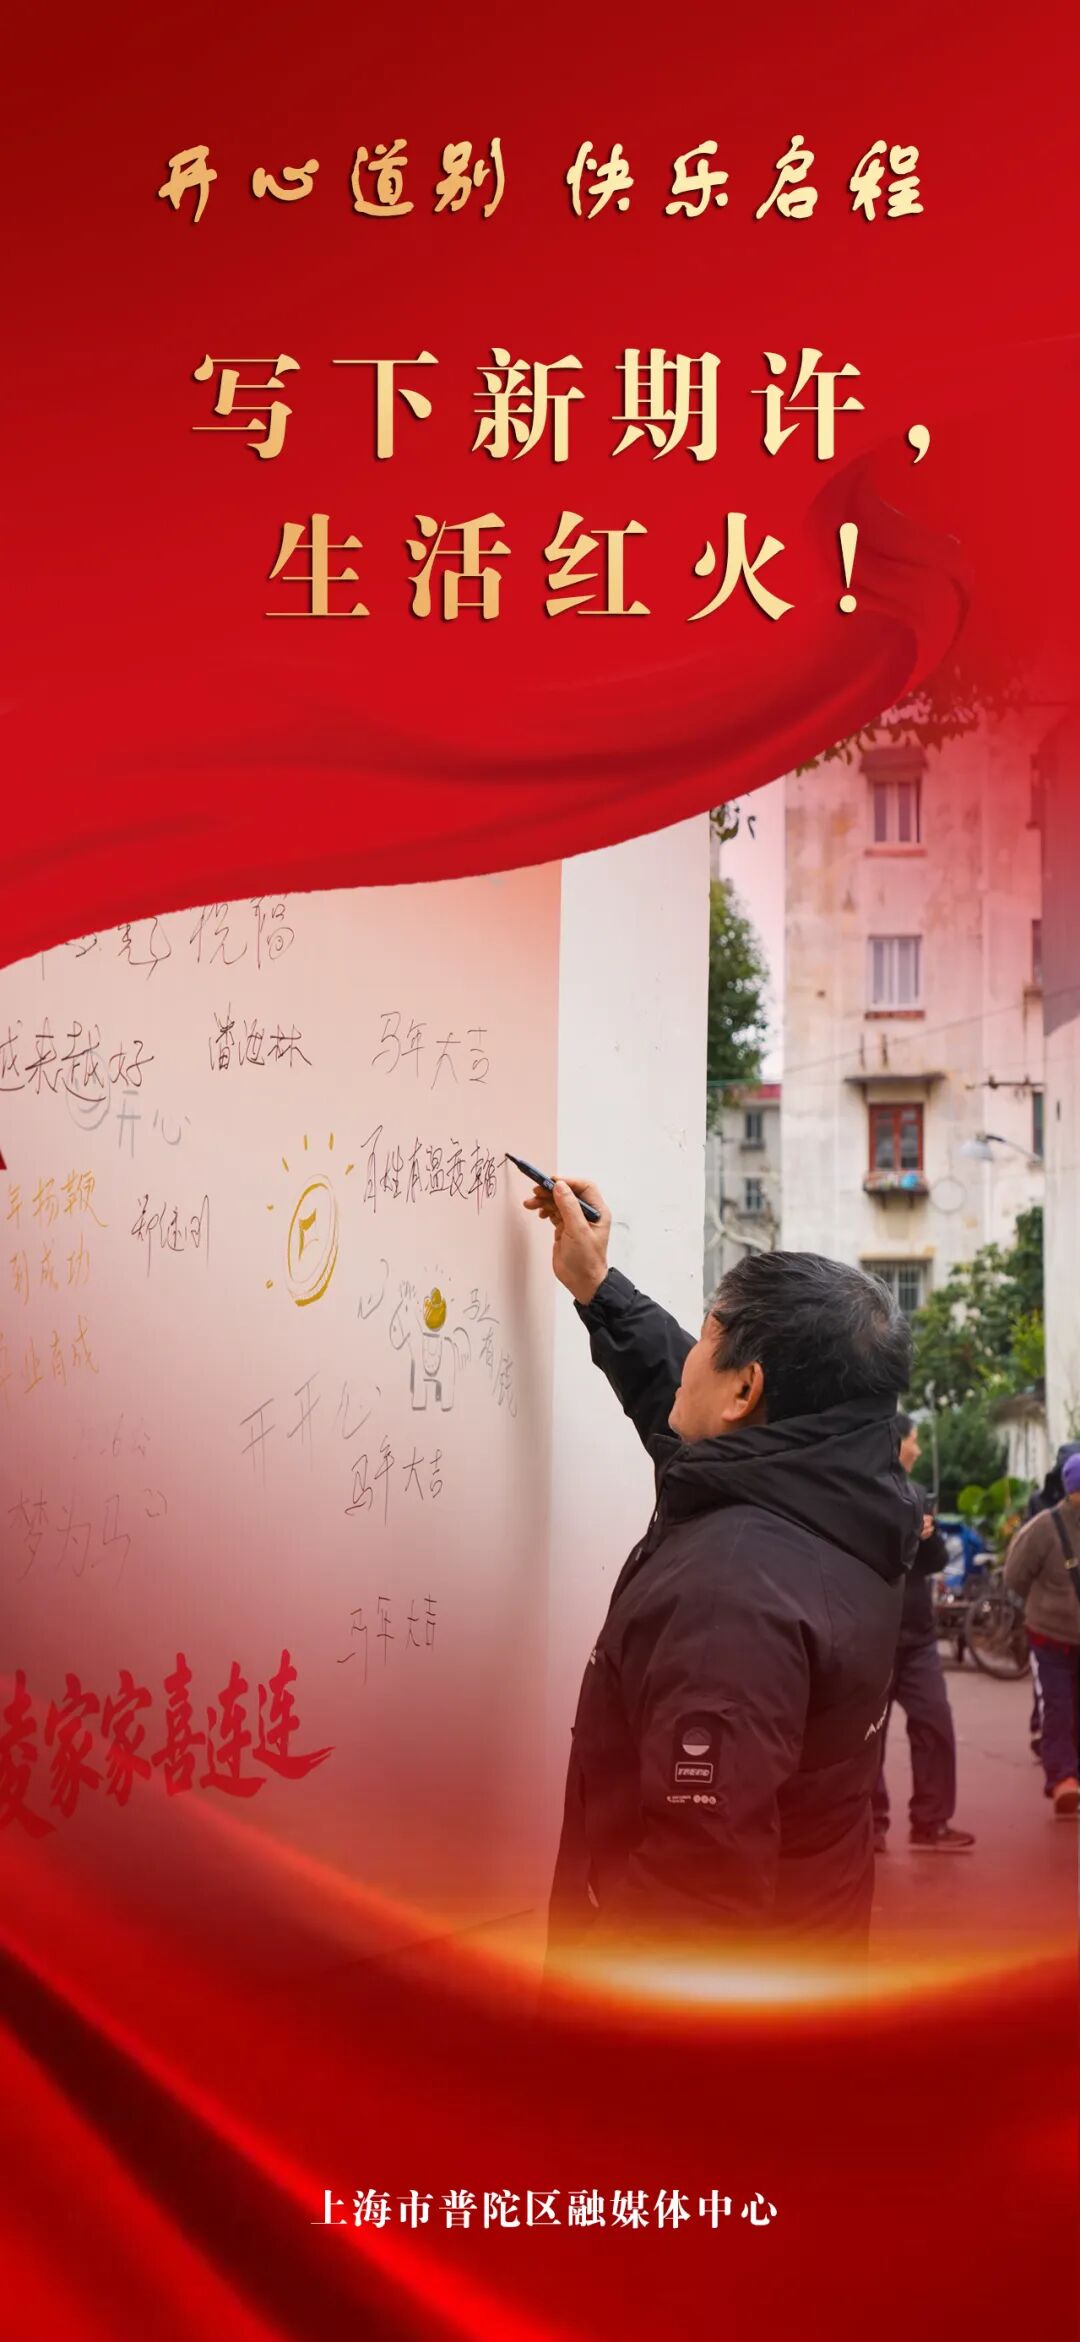 开心道别 快乐启程
写下新期许，
生活红火！
祝福
越来越好
马年大吉
开心
百姓有温度
年扬鞭
到成功
业有成
马上
有钱
开开心
马年大吉
梦为马
马年大吉
家家喜连连
TREND
上海市普陀区融媒体中心